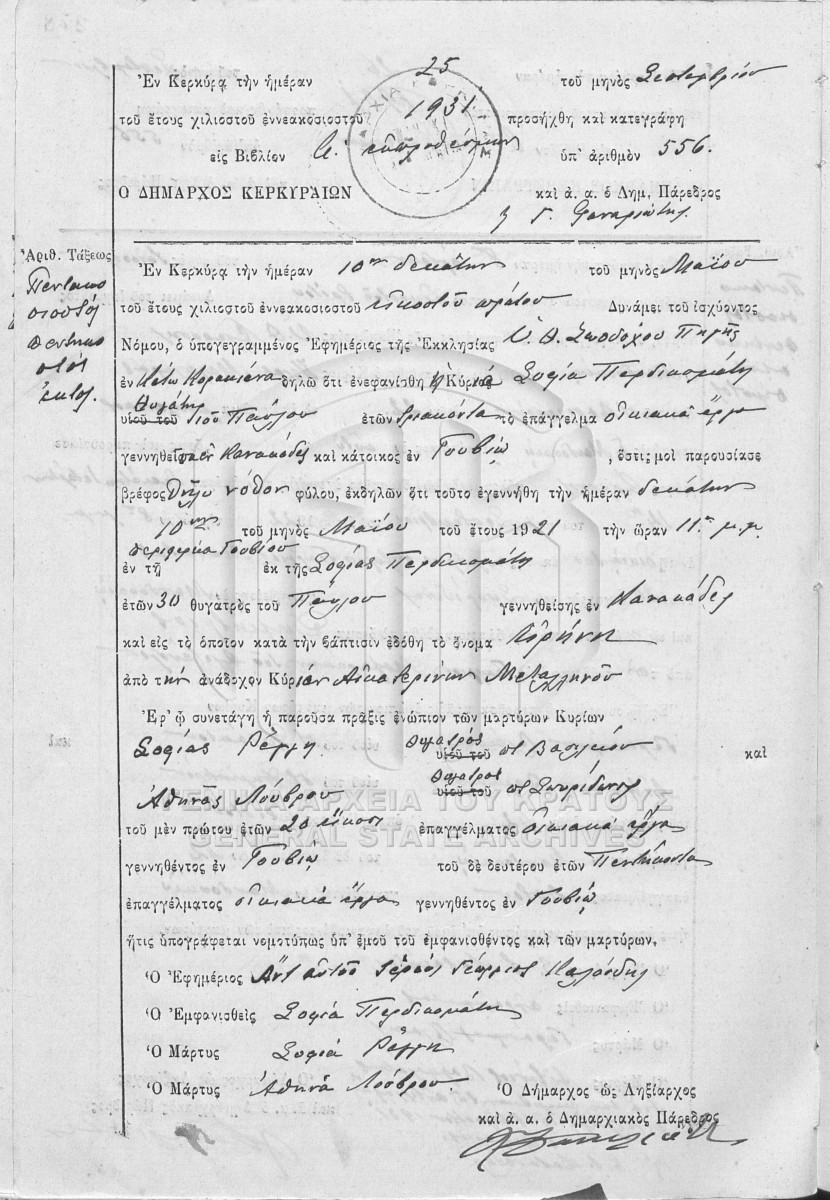 25
Ἐν Κερκύρᾳ τὴν ἡμέραν τοῦ μηνὸς Σεπτεμβρίου
τοῦ ἔτους χιλιοστοῦ ἐννεακοσιοστοῦ 1931 προσήχθη καὶ κατεγράφη
εἰς Βιβλίον ὑπ' ἀριθμὸν 556.
Ο ΔΗΜΑΡΧΟΣ ΚΕΡΚΥΡΑΙΩΝ καὶ ἀ. α. ὁ Δημ. Πάρεδρος
Γ.
Ἀριθ. Τάξεως
Πεντακο
σιοστός
πεντηκο
στός
ἕκτος.
Ἐν Κερκύρᾳ τὴν ἡμέραν 10ην δεκάτην τοῦ μηνὸς Μαΐου
τοῦ ἔτους χιλιοστοῦ ἐννεακοσιοστοῦ εἰκοστοῦ πρώτου Δυνάμει τοῦ ἰσχύοντος
Νόμου, ὁ ὑπογεγραμμένος Ἐφημέριος τῆς Ἐκκλησίας Υ. Θ. Ζωοδόχου Πηγῆς
ἐν Κάτω Κορακιάνα δηλῶ ὅτι ἐνεφανίσθη ἡ Κυρία Σοφία Περδικομάτη
θυγάτηρ
υἱοῦ τοῦ τοῦ Παύλου ἐτῶν τριάκοντα τὸ ἐπάγγελμα οἰκιακὰ ἔργα
γεννηθεῖσα ἐν Κανακάδες καὶ κάτοικος ἐν Γουβίῳ, ὅστις μοὶ παρουσίασε
βρέφος θῆλυ νόθον φύλου, ἐκδηλῶν ὅτι τοῦτο ἐγεννήθη τὴν ἡμέραν δεκάτην
10ην τοῦ μηνὸς Μαΐου τοῦ ἔτους 1921 τὴν ὥραν 11ην μ.μ.
περιφερείᾳ Γουβίου
ἐν τῇ ἐκ τῆς Σοφίας Περδικομάτη
ἐτῶν 30 θυγατρὸς τοῦ Παύλου γεννηθείσης ἐν Κανακάδες
καὶ εἰς τὸ ὁποῖον κατὰ τὴν βάπτισιν ἐδόθη τὸ ὄνομα Εἰρήνη
ἀπὸ τὴν ἀνάδοχον Κυρίαν Αἰκατερίνην Μεταλληνοῦ
Ἐφ' ᾧ συνετάγη ἡ παροῦσα πρᾶξις ἐνώπιον τῶν μαρτύρων Κυρίων
Σοφίας Ρέγγη θυγατρὸς υἱοῦ τοῦ Βασιλείου καὶ
Ἀθηνᾶς Λούβρου θυγατρὸς υἱοῦ τοῦ Σπυρίδωνος
ΓΕΝΙΚΑ ΑΡΧΕΙΑ ΤΟΥ ΚΡΑΤΟΥΣ
τοῦ μὲν πρώτου ἐτῶν 20 εἴκοσι ἐπαγγέλματος οἰκιακὰ ἔργα
GENERAL STATE ARCHIVES
γεννηθέντος ἐν Γουβίῳ τοῦ δὲ δευτέρου ἐτῶν Πεντήκοντα
ἐπαγγέλματος οἰκιακὰ ἔργα γεννηθέντος ἐν Γουβίῳ
ἥτις ὑπογράφεται νομοτύπως ὑπ' ἐμοῦ τοῦ ἐμφανισθέντος καὶ τῶν μαρτύρων,
Ὁ Ἐφημέριος Ἀντ' αὐτοῦ Ἱερεὺς Γεώργιος
Ὁ Ἐμφανισθεὶς Σοφία Περδικομάτη
Ὁ Μάρτυς Σοφία Ρέγγη
Ὁ Μάρτυς Ἀθηνᾶ Λούβρου Ὁ Δήμαρχος ὡς Ληξίαρχος
καὶ ἀ. α. ὁ Δημαρχιακὸς Πάρεδρος